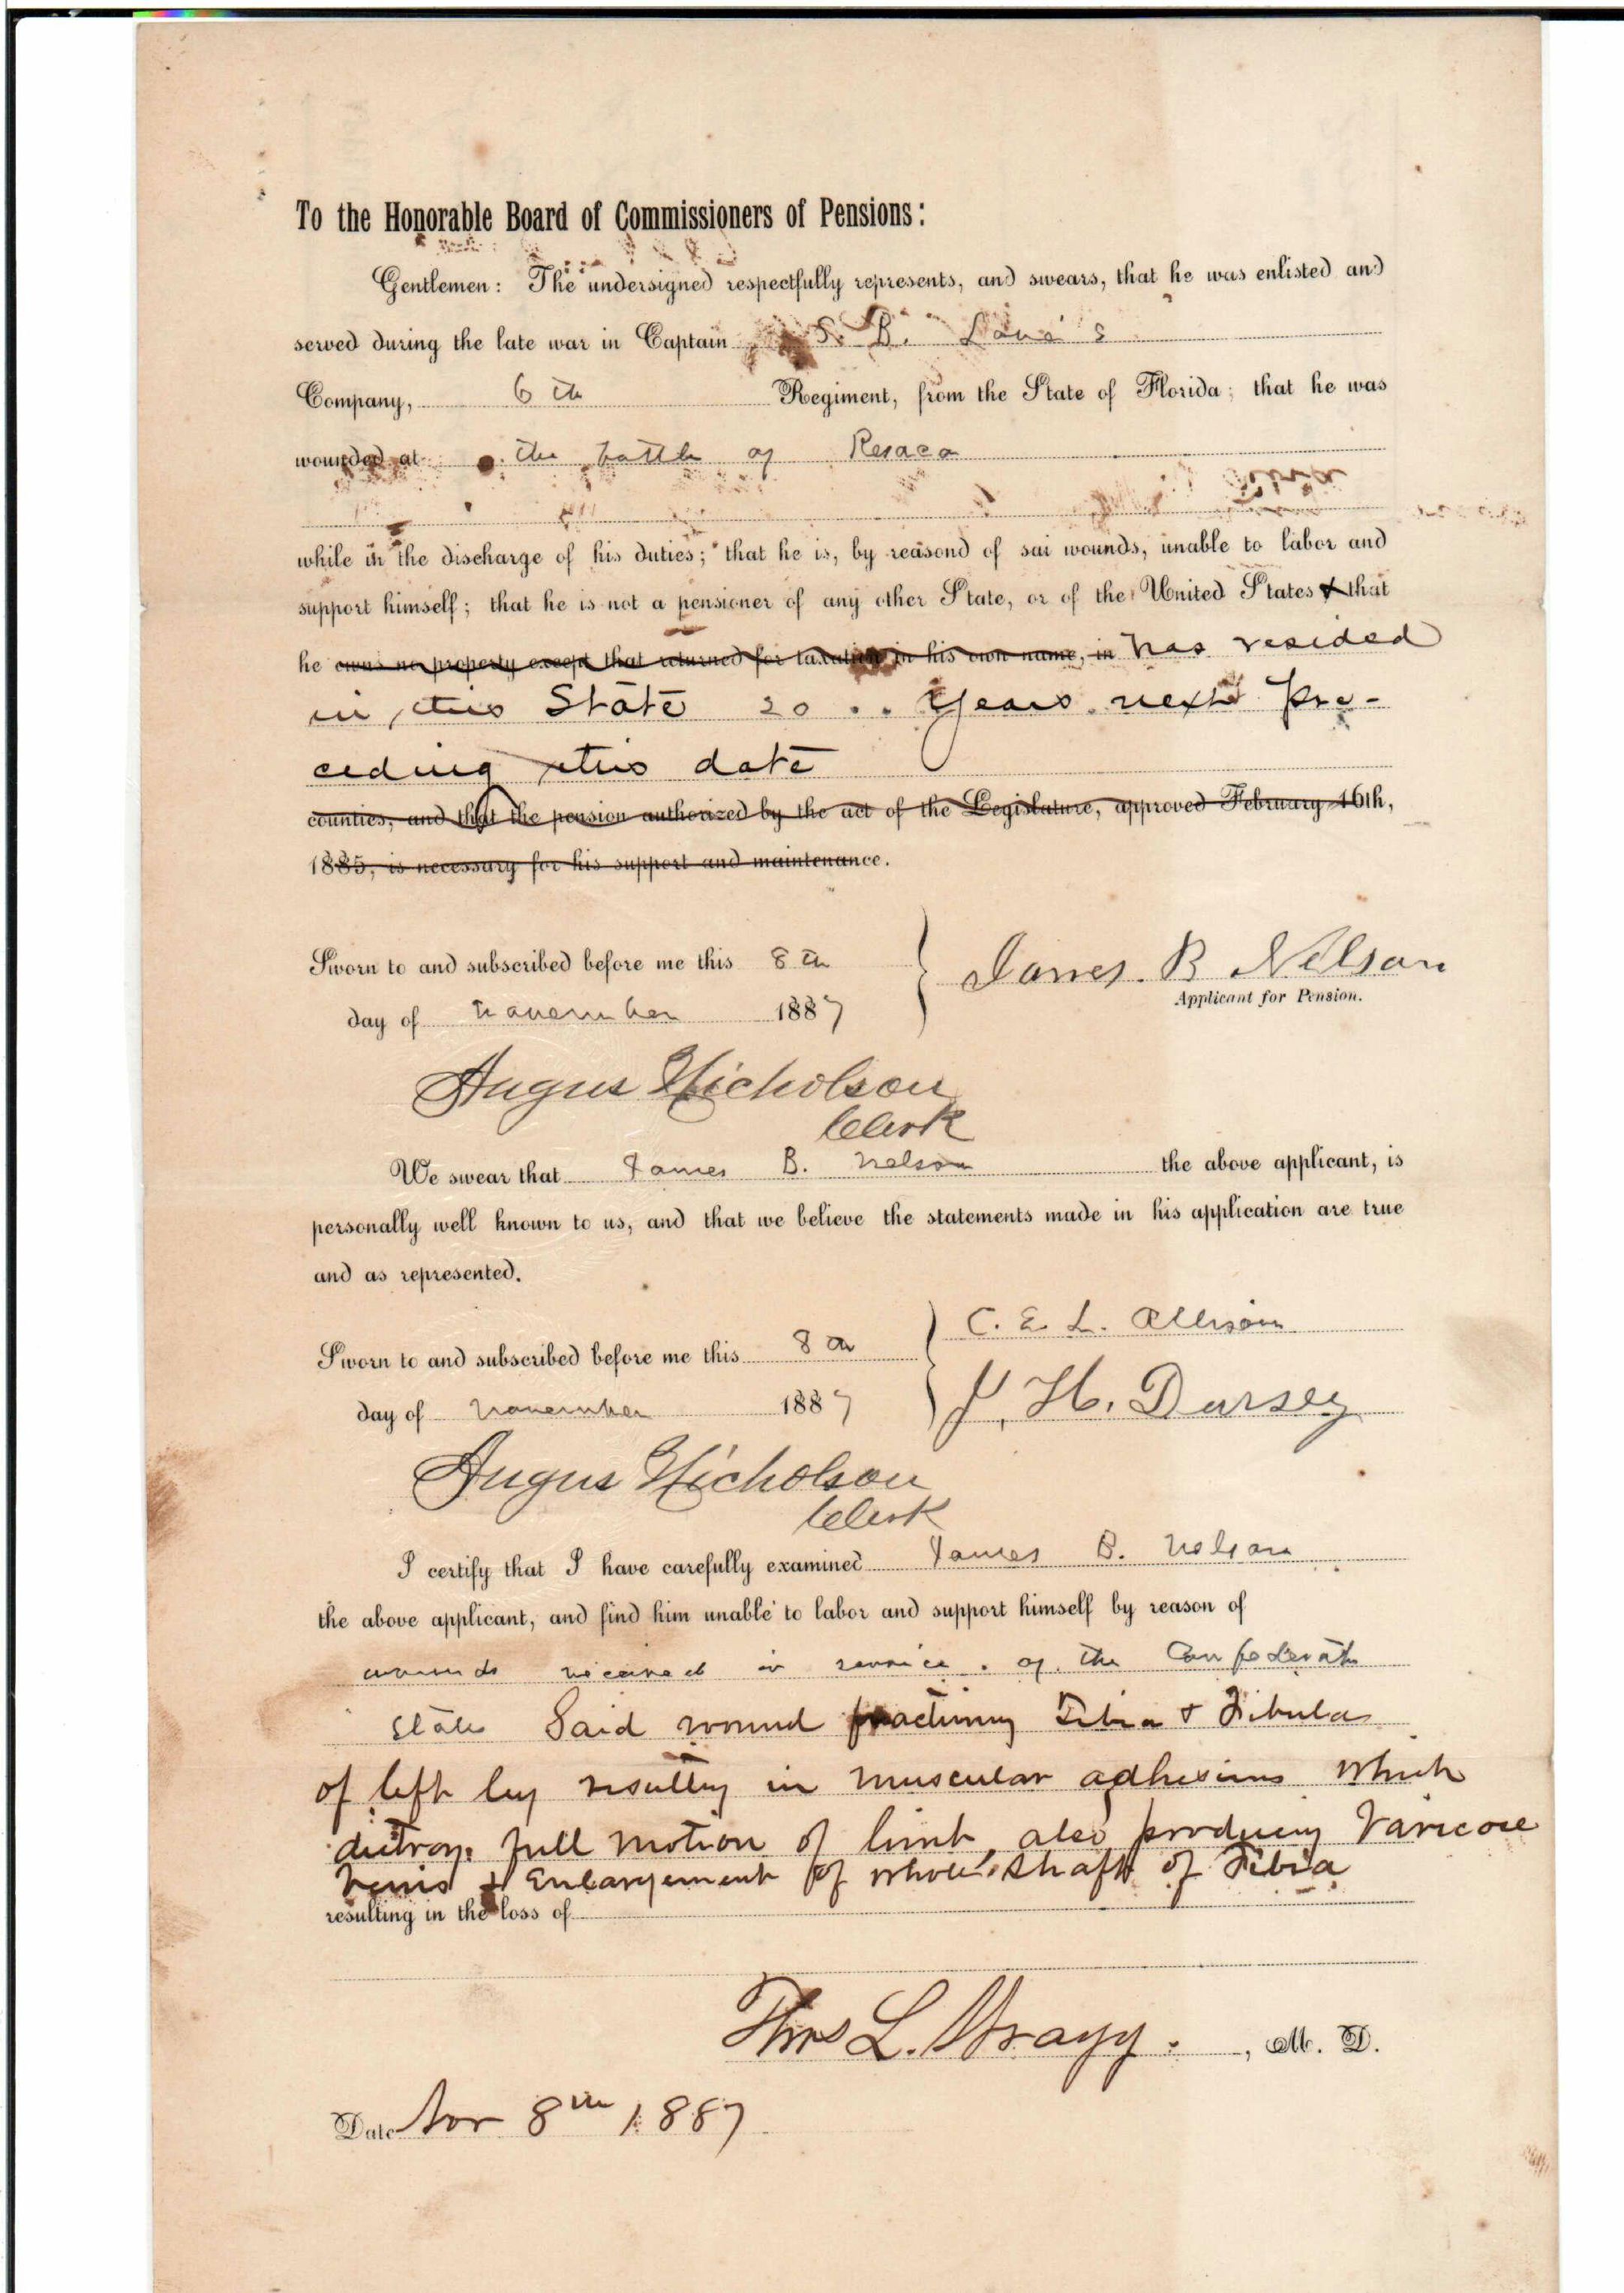 To the Honorable Board of Commissioners of Pensions:
Gentlemen: The undersigned respectfully represents, and swears, that he was enlisted and
served during the late war in Captain S. B. Love's
Company, 6th Regiment, from the State of Florida; that he was
wounded at the battle of Resaca
while in the discharge of his duties; that he is, by reasond of sai wounds, unable to labor and
support himself; that he is not a pensioner of any other State, or of the United States & that
he owns no property except that returned for taxation in his own name, in has resided
in this State 20 Years next pre-
ceding this date
counties, and that the pension authorized by the act of the Legislature, approved February 16th,
1885, is necessary for his support and maintenance.
Sworn to and subscribed before me this 8th
James. B Nelson
Applicant for Pension.
day of November 1887
Angus Nicholson
Clerk
We swear that James B. Nelson the above applicant, is
personally well known to us, and that we believe the statements made in his application are true
and as represented.
C. E. L. Allison
Sworn to and subscribed before me this 8th
J. H. Dorsey
day of November 1887
Angus Nicholson
Clerk
I certify that I have carefully examined James B. Nelson
the above applicant, and find him unable to labor and support himself by reason of
wounds received in service of the Confederate
States Said wound fracturing Tibia & Fibula
of left leg resulting in muscular adhesions which
destroys full motion of limb also producing Varicose
Veins & Enlargement of whole shaft of Tibia
resulting in the loss of
Thos L. , M. D.
Date Nov 8th 1887